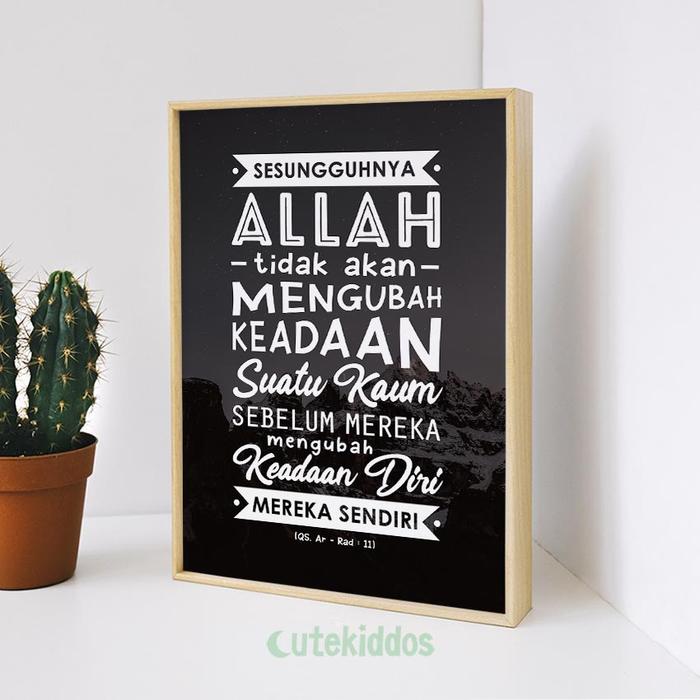 SESUNGGUHNYA
ALLAH
- tidak akan -
MENGUBAH
KEADAAN
Suatu Kaum
SEBELUM MEREKA
mengubah
Keadaan Diri
MEREKA SENDIRI
(QS. Ar - Rad : 11)
cutekiddos